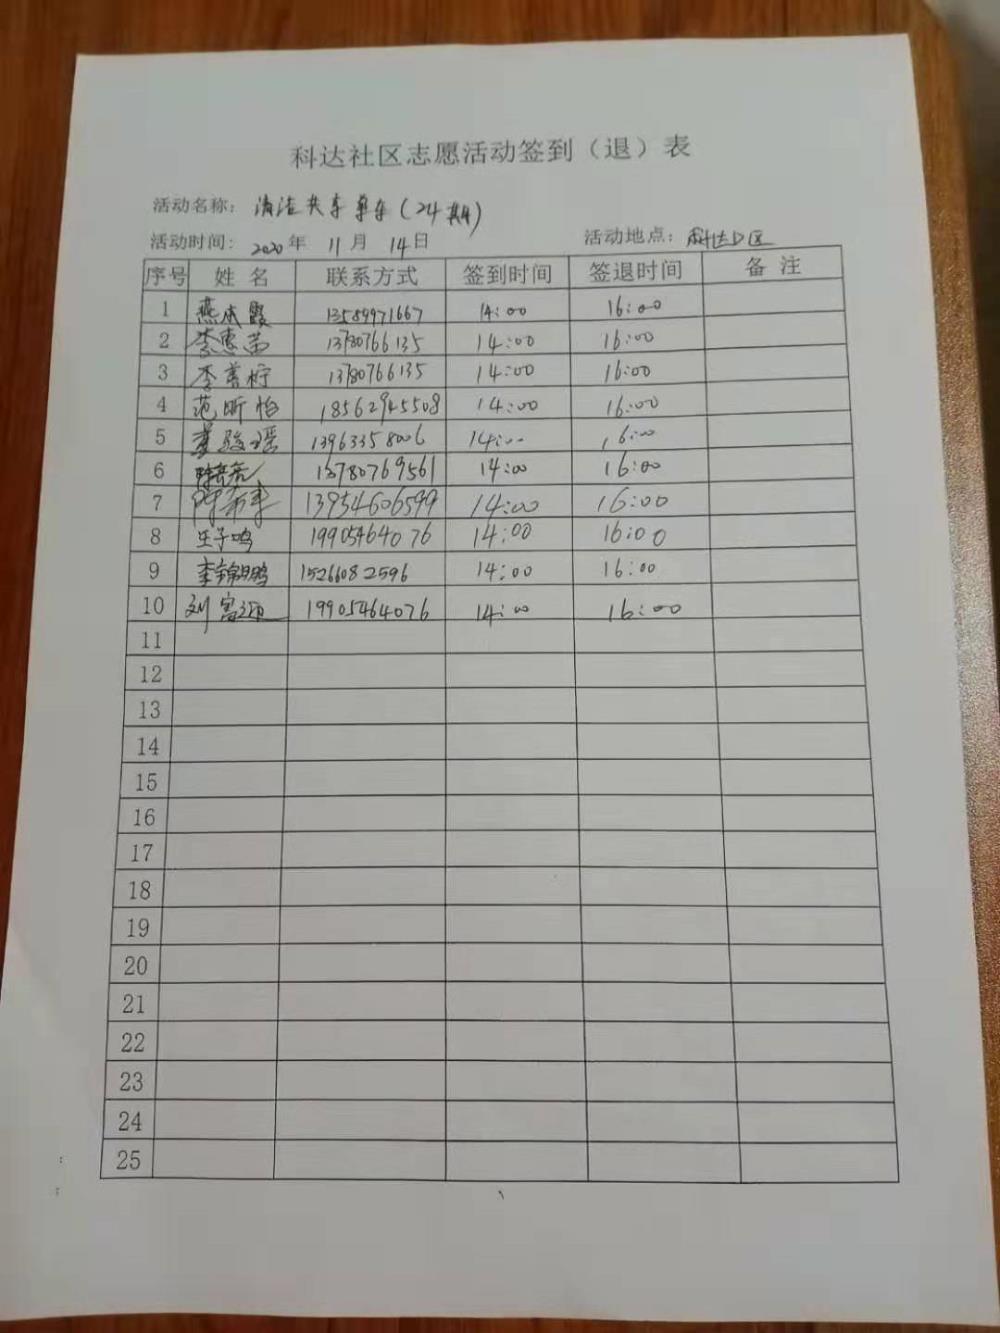 科达社区志愿活动签到（退）表
活动名称：清洁共享单车（24期）
活动时间：2020年 11月 14日 活动地点：科达口区
序号 姓 名 联系方式 签到时间 签退时间 备 注
1 燕成霞 13589971667 14:00 16:00
2 李惠苗 13780766135 14:00 16:00
3 李菁柠 13780766135 14:00 16:00
4 范昕怡 18562945508 14:00 16:00
5 骏瑶 13963358006 14:00 16:00
6 13780769561 14:00 16:00
7 13954606599 14:00 16:00
8 王子鸣 19905464076 14:00 16:00
9 李锦鹏 15266082596 14:00 16:00
10 刘富 19905464076 14:00 16:00
11
12
13
14
15
16
17
18
19
20
21
22
23
24
25